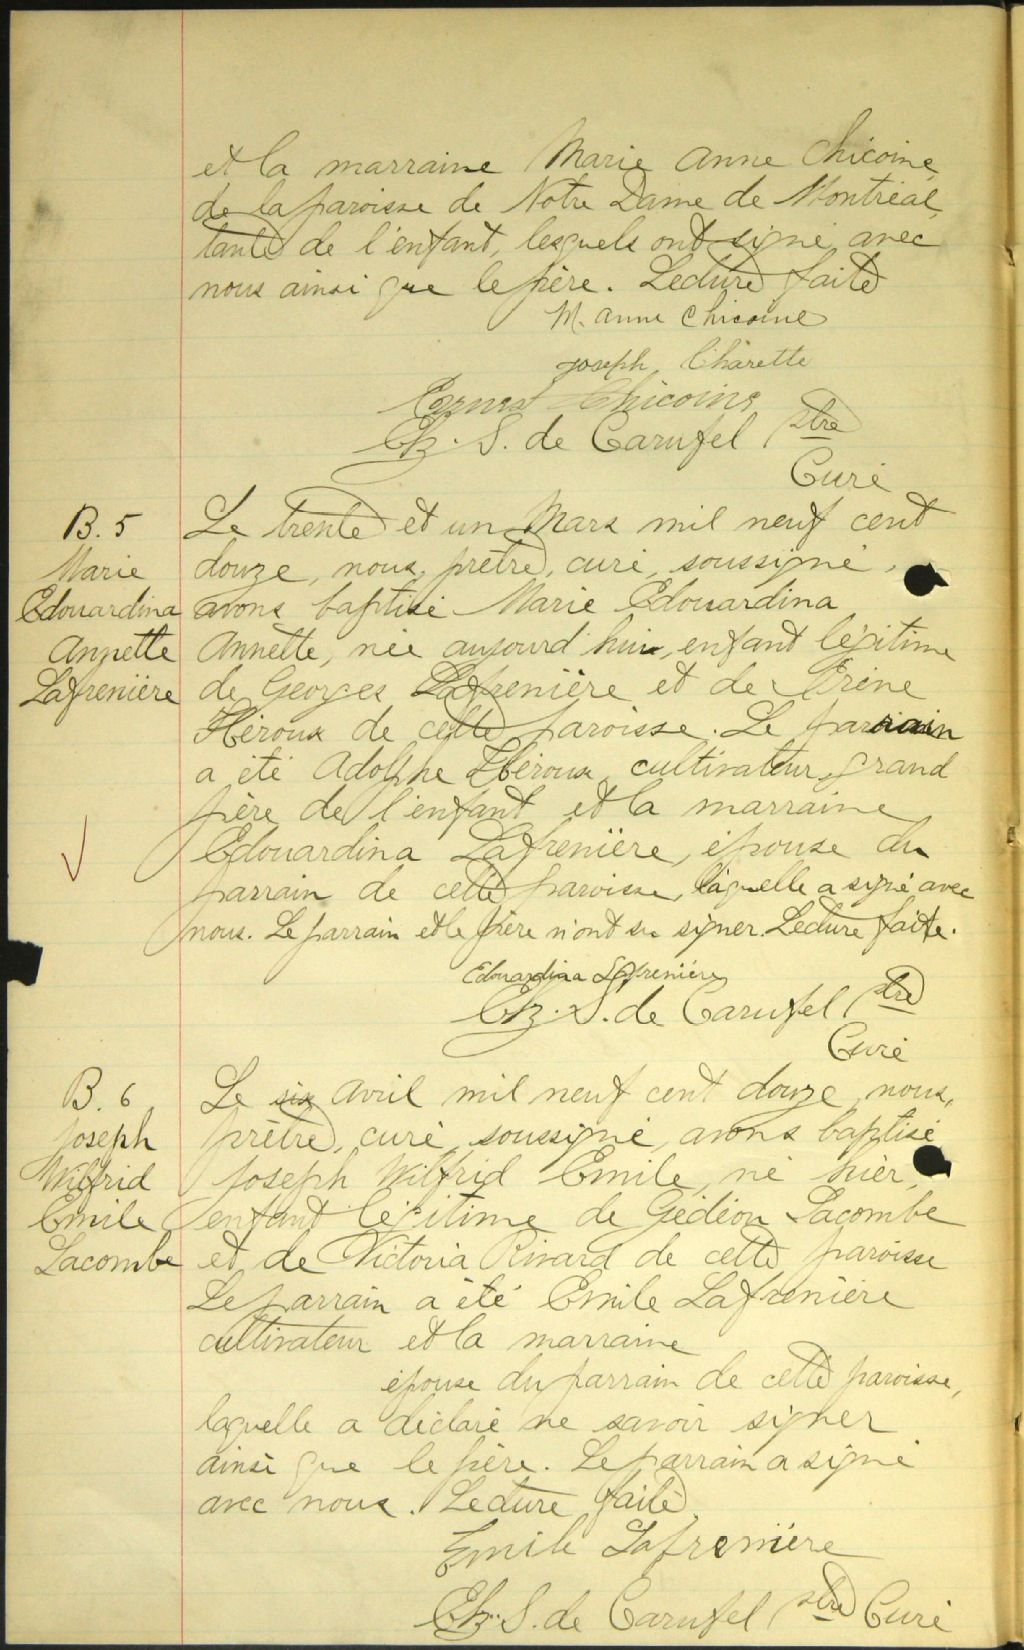 et la marraine Marie Anne Chicoine
de la paroisse de Notre Dame de Montréal,
tante de l'enfant, lesquels ont signé avec
nous ainsi que le père. Lecture faite
M. Anne Chicoine
Joseph Charette
Ernest Chicoine
Chs. S. de Carufel ptre
Curé
B. 5
Marie
Edouardina
Annette
Lafrenière
Le trente et un Mars mil neuf cent
douze, nous, prêtre, curé, soussigné,
avons baptisé Marie Edouardina
Annette, née aujourd'hui, enfant légitime
de Georges Lafrenière et de Irène
Héroux de cette paroisse. Le parrain
a été Adolphe Héroux, cultivateur, grand
père de l'enfant et la marraine
Edouardina Lafrenière, épouse du
parrain de cette paroisse, laquelle a signé avec
nous. Le parrain et le père n'ont su signer. Lecture faite.
Edouardina Lafrenière
Chs. S. de Carufel ptre
Curé
B. 6
Joseph
Wilfrid
Emile
Lacombe
Le six Avril mil neuf cent douze, nous,
prêtre, curé, soussigné, avons baptisé
Joseph Wilfrid Emile, né hier,
enfant légitime de Gédéon Lacombe
et de Victoria Rivard de cette paroisse
Le parrain a été Emile Lafrenière
cultivateur et la marraine
épouse du parrain de cette paroisse,
laquelle a déclaré ne savoir signer
ainsi que le père. Le parrain a signé
avec nous. Lecture faite
Emile Lafrenière
Chs. S. de Carufel ptre Curé